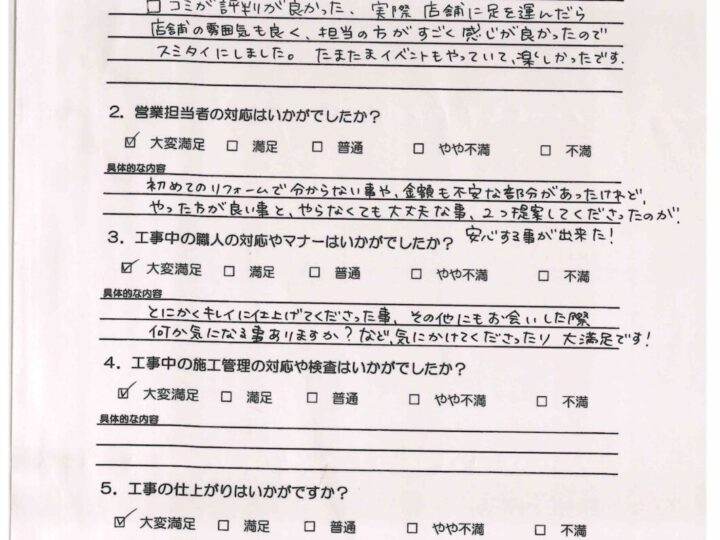 口コミが評判が良かった、実際店舗に足を運んだら
店舗の雰囲気も良く、担当の方がすごく感じが良かったので
スミタイにしました。たまたまイベントもやっていて、楽しかったです.
2．営業担当者の対応はいかがでしたか？
☑ 大変満足 □ 満足 □ 普通 □ やや不満 □ 不満
具体的な内容
初めてのリフォームで分からない事や、金額も不安な部分があったけれど、
やった方が良い事と、やらなくても大丈夫な事、2つ提案してくださったのが、
安心する事が出来た！
3．工事中の職人の対応やマナーはいかがでしたか？
☑ 大変満足 □ 満足 □ 普通 □ やや不満 □ 不満
具体的な内容
とにかくキレイに仕上げてくださった事、その他にもお会いした際
何か気になる事ありますか？など、気にかけてくださったり 大満足です！
4．工事中の施工管理の対応や検査はいかがでしたか？
☑ 大変満足 □ 満足 □ 普通 □ やや不満 □ 不満
具体的な内容
5．工事の仕上がりはいかがですか？
☑ 大変満足 □ 満足 □ 普通 □ やや不満 □ 不満